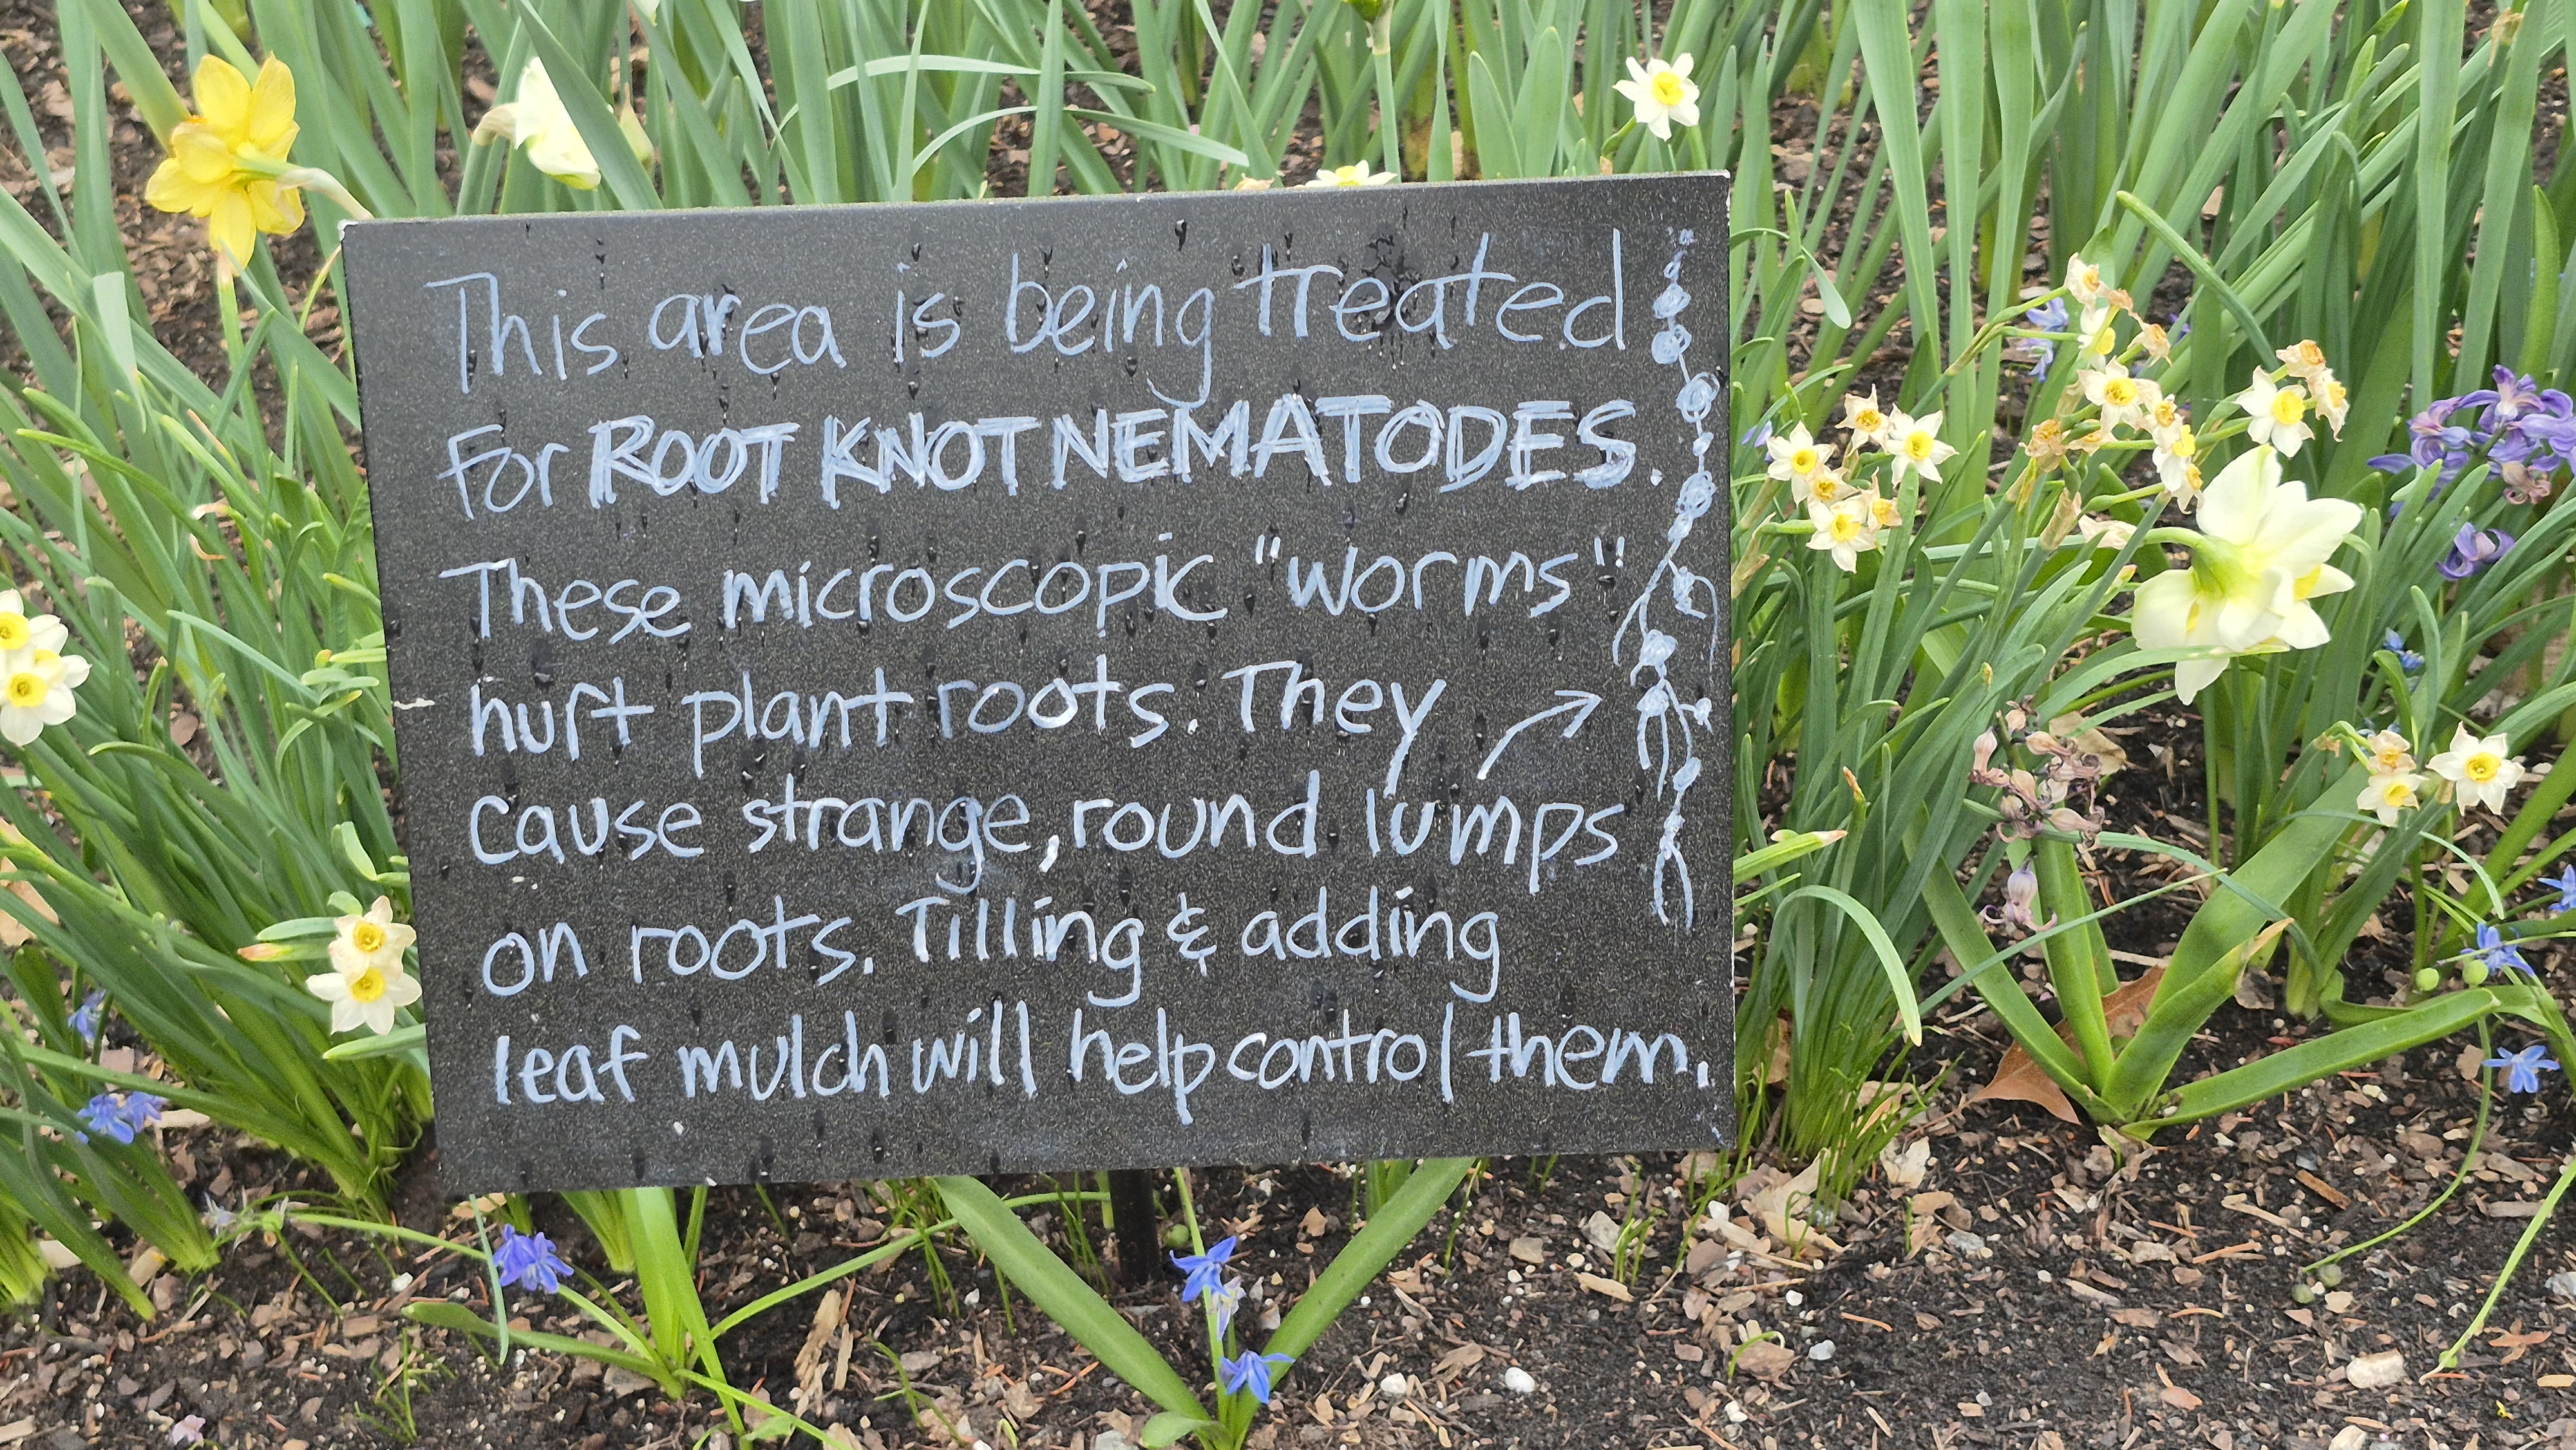 This area is being treated
for ROOT KNOT NEMATODES.
These microscopic "worms"
hurt plant roots. They
cause strange, round lumps
on roots. Tilling & adding
leaf mulch will help control them.